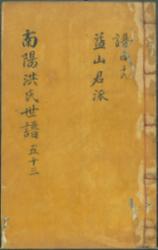 南陽洪氏世譜 五十三
益山君派